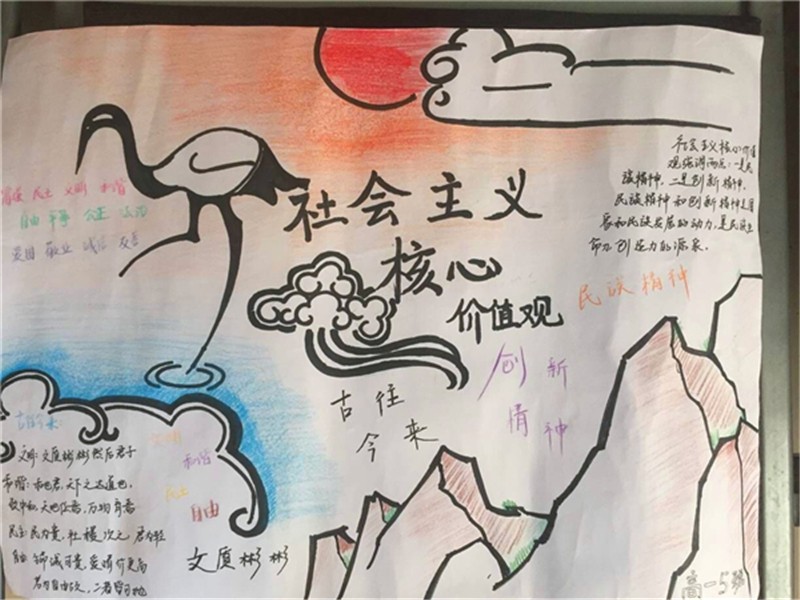 社会主义
核心
价值观
富强 民主 文明 和谐
自由 平等 公正 法治
爱国 敬业 诚信 友善
社会主义核心价值
观强调两点：一是民
族精神，二是创新精神，
民族精神和创新精神是国
家和民族发展的动力，是民族生
命力创造力的源泉．
民族精神
创新
精神
古往
今来
古韵今来：
文明：文质彬彬然后君子
和谐：和也者，天下之达道也，
致中和，天地位焉，万物育焉
民主：民为贵，社稷次之，君为轻
自由：诚可贵，爱情价更高
若为自由故，二者皆可抛
文明
和谐
民主
自由
文质彬彬
高一5班